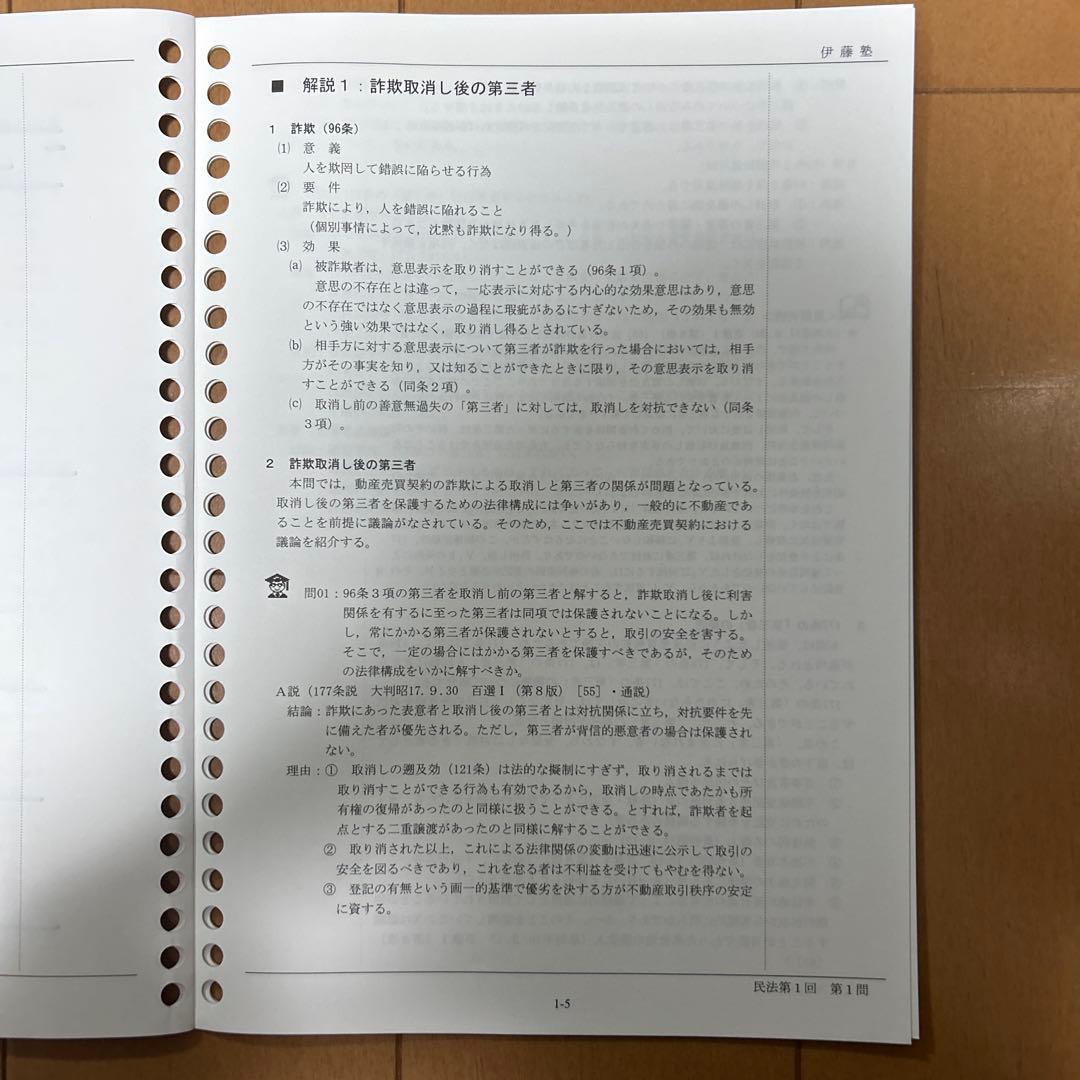 伊藤塾
■ 解説１：詐欺取消し後の第三者
１ 詐欺（96条）
⑴ 意 義
人を欺罔して錯誤に陥らせる行為
⑵ 要 件
詐欺により，人を錯誤に陥れること
（個別事情によって，沈黙も詐欺になり得る。）
⑶ 効 果
(a) 被詐欺者は，意思表示を取り消すことができる（96条１項）。
意思の不存在とは違って，一応表示に対応する内心的な効果意思はあり，意思
の不存在ではなく意思表示の過程に瑕疵があるにすぎないため，その効果も無効
という強い効果ではなく，取り消し得るとされている。
(b) 相手方に対する意思表示について第三者が詐欺を行った場合においては，相手
方がその事実を知り，又は知ることができたときに限り，その意思表示を取り消
すことができる（同条２項）。
(c) 取消し前の善意無過失の「第三者」に対しては，取消しを対抗できない（同条
３項）。
２ 詐欺取消し後の第三者
本問では，動産売買契約の詐欺による取消しと第三者の関係が問題となっている。
取消し後の第三者を保護するための法律構成には争いがあり，一般的に不動産であ
ることを前提に議論がなされている。そのため，ここでは不動産売買契約における
議論を紹介する。
問01：96条３項の第三者を取消し前の第三者と解すると，詐欺取消し後に利害
関係を有するに至った第三者は同項では保護されないことになる。しか
し，常にかかる第三者が保護されないとすると，取引の安全を害する。
そこで，一定の場合にはかかる第三者を保護すべきであるが，そのため
の法律構成をいかに解すべきか。
Ａ説（177条説 大判昭17.９.30 百選Ⅰ（第８版）［55］・通説）
結論：詐欺にあった表意者と取消し後の第三者とは対抗関係に立ち，対抗要件を先
に備えた者が優先される。ただし，第三者が背信的悪意者の場合は保護され
ない。
理由：① 取消しの遡及効（121条）は法的な擬制にすぎず，取り消されるまでは
取り消すことができる行為も有効であるから，取消しの時点であたかも所
有権の復帰があったのと同様に扱うことができる。とすれば，詐欺者を起
点とする二重譲渡があったのと同様に解することができる。
② 取り消された以上，これによる法律関係の変動は迅速に公示して取引の
安全を図るべきであり，これを怠る者は不利益を受けてもやむを得ない。
③ 登記の有無という画一的基準で優劣を決する方が不動産取引秩序の安定
に資する。
民法第１回 第１問
1-5